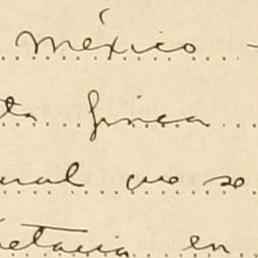 méxico -
ta finca
ual que se
etaria en